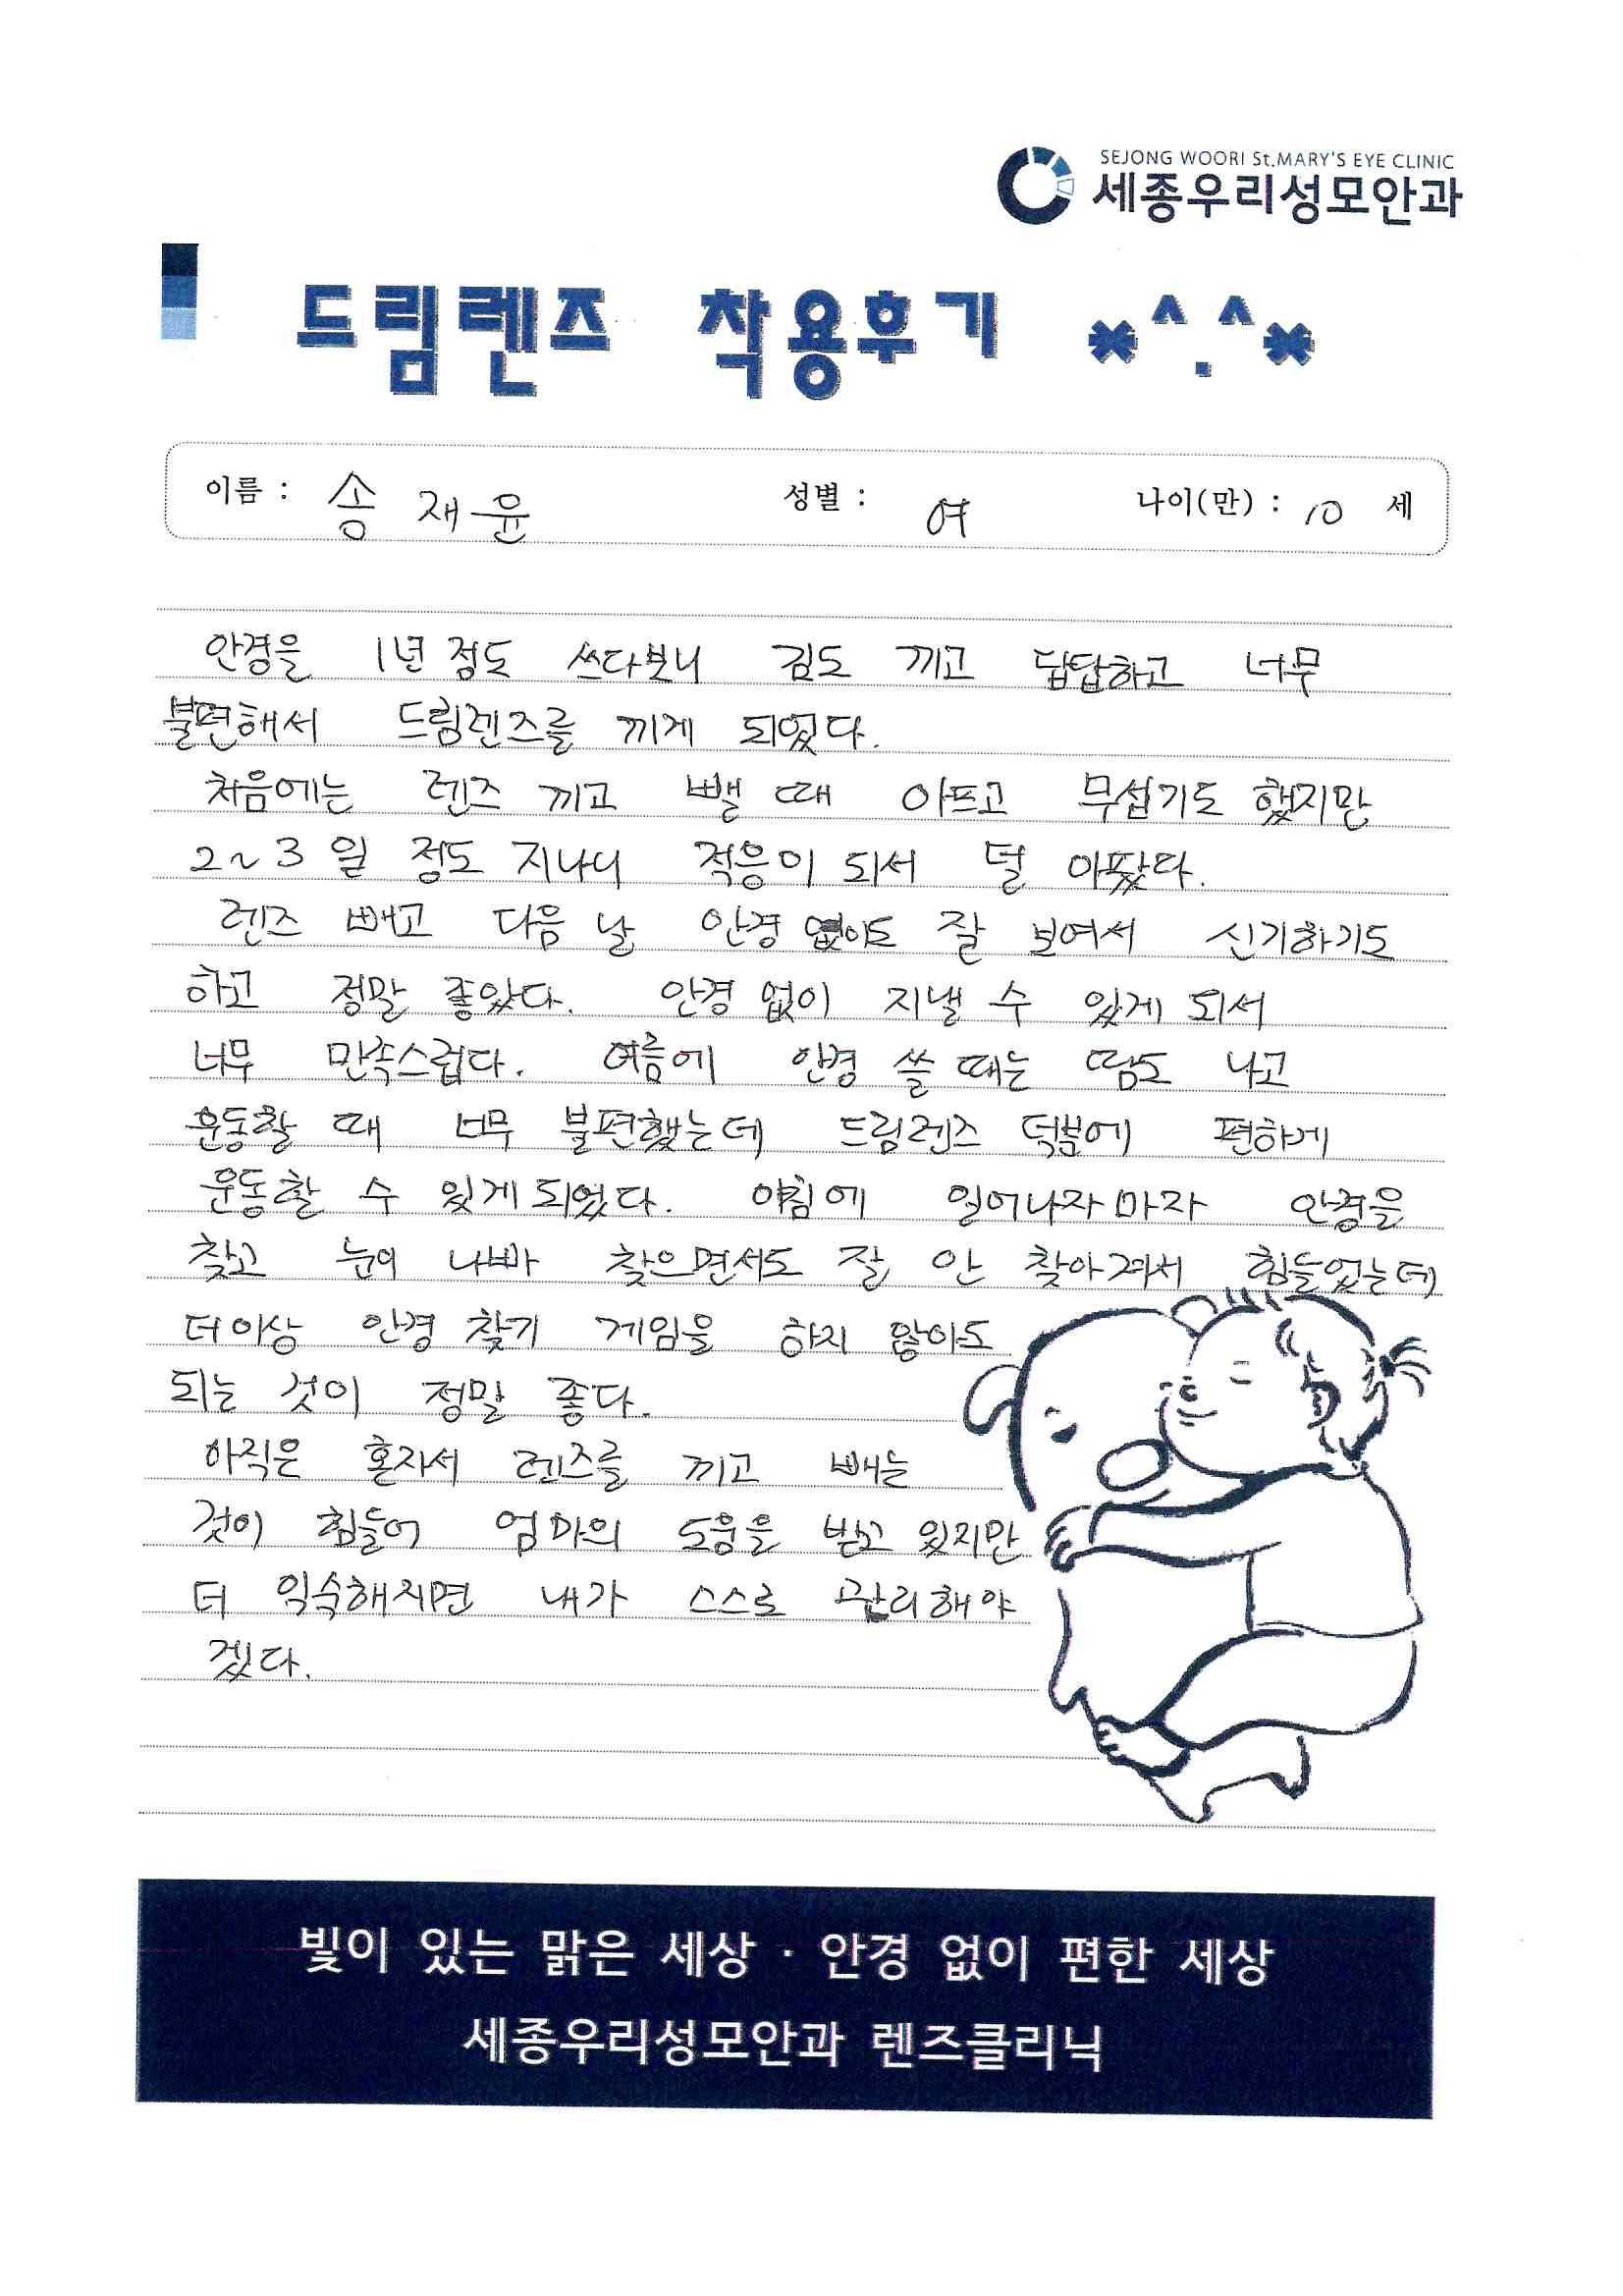 SEJONG WOORI St.MARY'S EYE CLINIC
세종우리성모안과
드림렌즈 착용후기 *^.^*
이름 : 송재윤 성별 : 여 나이(만) : 10 세
안경을 1년 정도 쓰다보니 김도 끼고 답답하고 너무
불편해서 드림렌즈를 끼게 되었다.
처음에는 렌즈 끼고 뺄 때 아프고 무섭기도 했지만
2~3일 정도 지나니 적응이 되서 덜 아팠다.
렌즈 빼고 다음 날 안경 없이도 잘 보여서 신기하기도
하고 정말 좋았다. 안경 없이 지낼 수 있게 되서
너무 만족스럽다. 여름에 안경 쓸 때는 땀도 나고
운동할 때 너무 불편했는데 드림렌즈 덕분에 편하게
운동할 수 있게 되었다. 아침에 일어나자마자 안경을
찾고 눈이 나빠 찾으면서도 잘 안 찾아져서 힘들었는데
더이상 안경 찾기 게임을 하지 않아도
되는 것이 정말 좋다.
아직은 혼자서 렌즈를 끼고 빼는
것이 힘들어 엄마의 도움을 받고 있지만
더 익숙해지면 내가 스스로 관리해야
겠다.
빛이 있는 맑은 세상 · 안경 없이 편한 세상
세종우리성모안과 렌즈클리닉